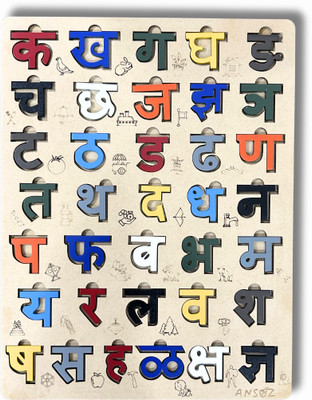 क ख ग घ ङ
च छ ज झ ञ
ट ठ ड ढ ण
त थ द ध न
प फ ब भ म
य र ल व श
ष स ह ळ क्ष ज्ञ
ANSOZ